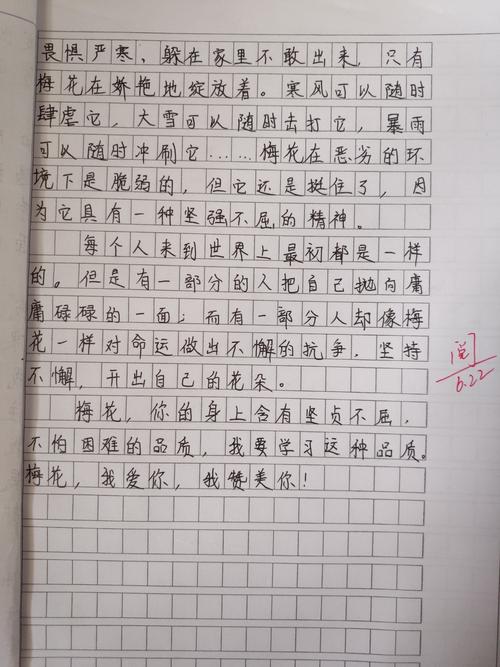 畏惧严寒、躲在家里不敢出来，只有
梅花在娇艳地绽放着。寒风可以随时
肆虐它，大雪可以随时去打它，暴雨
可以随时冲刷它……梅花在恶劣的环
境下是脆弱的，但它还是挺住了，因
为它具有一种坚强不屈的精神。
每个人来到世界上最初都是一样
的。但是有一部分的人把自己抛向庸
庸碌碌的一面；而有一部分人却像梅
花一样对命运做出不懈的抗争，坚持
不懈，开出自己的花朵。
梅花，你的身上含有坚贞不屈，
不怕困难的品质，我要学习这种品质。
梅花，我爱你，我赞美你！
阅
6.22